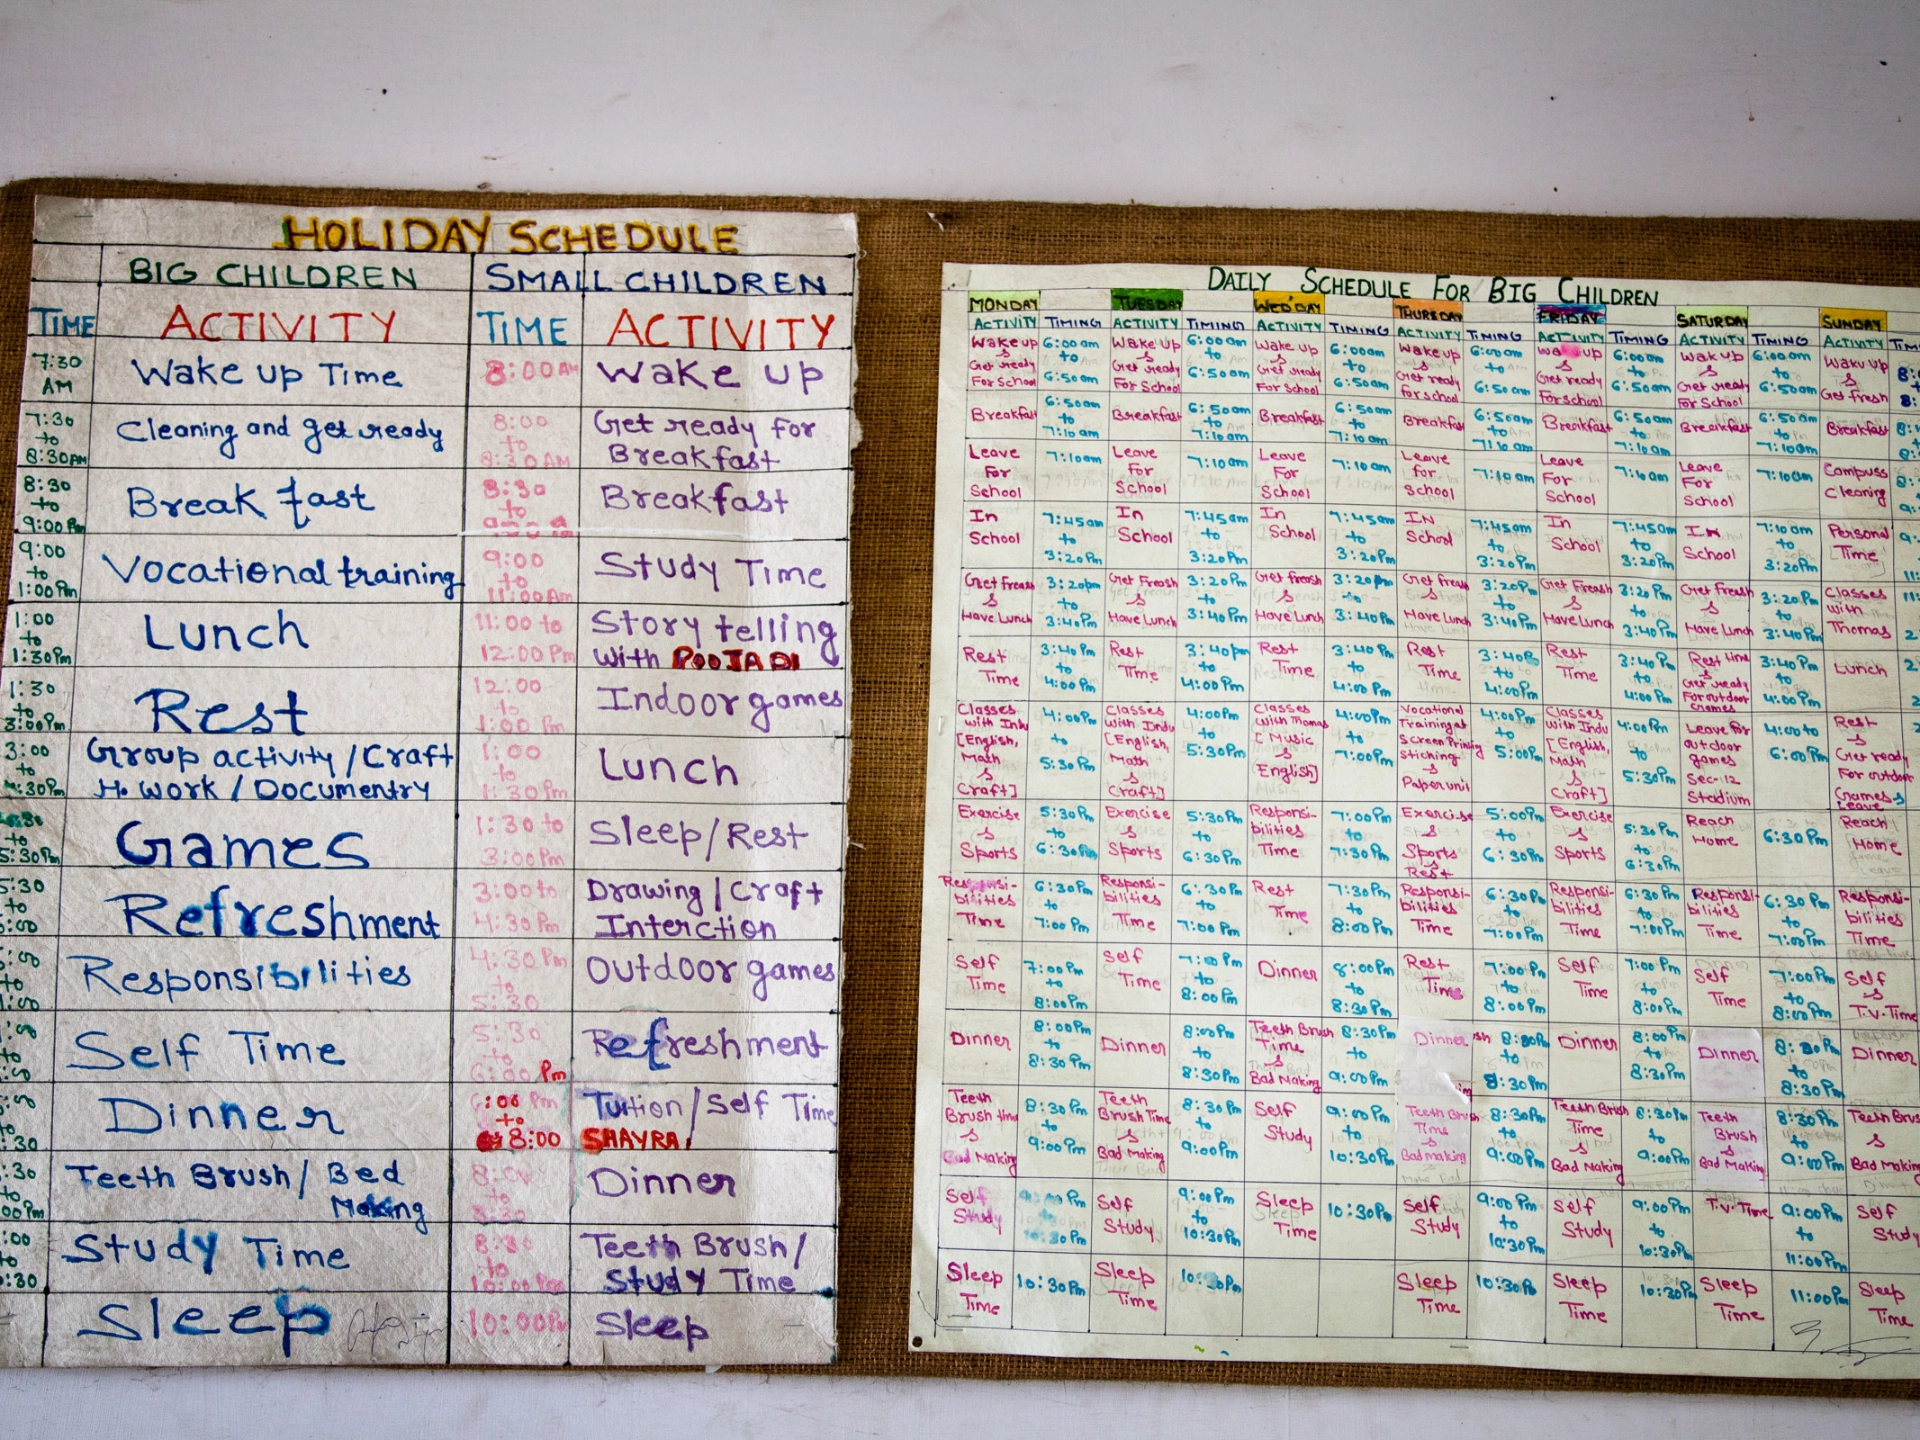 HOLIDAY SCHEDULE
BIG CHILDREN SMALL CHILDREN
TIME ACTIVITY TIME ACTIVITY
7:30 AM Wake up Time 8:00 AM Wake up
7:30 to 8:30 AM Cleaning and get ready 8:00 to 8:30 AM Get ready for Breakfast
8:30 to 9:00 Pm Break fast 8:30 to Breakfast
9:00 to 1:00 Pm Vocational training 9:00 to 11:00 Am Study Time
1:00 to 1:30 Pm Lunch 11:00 to 12:00 Pm Story telling With POOJA DI
1:30 to 3:00 Pm Rest 12:00 to 1:00 Pm Indoor games
3:00 to 4:30 Pm Group activity / Craft H. Work / Documentry 1:00 to 1:30 Pm Lunch
to 5:30 Pm Games 1:30 to 3:00 Pm Sleep / Rest
5:30 to Refreshment 3:00 to 4:30 Pm Drawing / Craft Interction
to Responsibilities 4:30 Pm to 5:30 Outdoor games
to Self Time 5:30 to 6:00 Pm Refreshment
to :30 Dinner 6:00 Pm to 8:00 Tuition / Self Time SHAYRA
:30 to 00 Pm Teeth Brush / Bed Making 8:00 to 8:30 Dinner
:00 to :30 Study Time 8:30 to 10:00 Pm Teeth Brush / Study Time
Sleep 10:00 Pm Sleep
DAILY SCHEDULE FOR BIG CHILDREN
MONDAY TUESDAY WED'DAY THURSDAY FRIDAY SATURDAY SUNDAY
ACTIVITY TIMING ACTIVITY TIMING ACTIVITY TIMING ACTIVITY TIMING ACTIVITY TIMING ACTIVITY TIMING ACTIVITY TIM
Wake up 6:00 am Wake up 6:00 am Wake up 6:00 am Wake up 6:00 am Wake up 6:00 am Wak up 6:00 am Waku up 8:
& to & to & to & to & to & to &
Get ready Get ready Get ready Get ready Get ready Get ready Get fresh 8:
For School 6:50 am For School 6:50 am For School 6:50 am For school 6:50 am For school 6:50 am For School 6:50 am
Breakfast 6:50 am to 7:10 am Breakfast 6:50 am to 7:10 am Breakfast 6:50 am to 7:10 am Breakfas 6:50 am to 7:10 am Breakfast 6:50 am to 7:10 am Breakfast 6:50 am to 7:10 am Breakfast 8:
Leave For School 7:10 am Leave For School 7:10 am Leave For School 7:10 am Leave for School 7:10 am Leave For School 7:10 am Leave For School 7:10 am Campuss Cleaning
In School 7:45 am to 3:20 Pm In School 7:45 am to 3:20 Pm In School 7:45 am to 3:20 Pm IN School 7:45 am to 3:20 Pm In School 7:45 am to 3:20 Pm In School 7:10 am to 3:20 Pm Personal Time 9:
Get Freash & Have Lunch 3:20 pm to 3:40 Pm Get Freash & Have Lunch 3:20 Pm to 3:40 Pm Get freash & Have Lunch 3:20 Pm to 3:40 Pm Get freash & Have Lunch 3:20 Pm to 3:40 Pm Get Freash & Have Lunch 3:20 Pm to 3:40 Pm Get Freash & Have Lunch 3:20 Pm to 3:40 Pm Classes with Thomas 11:
Rest Time 3:40 Pm to 4:00 Pm Rest Time 3:40 pm to 4:00 Pm Rest Time 3:40 Pm to 4:00 Pm Rest Time 3:40 Pm to 4:00 Pm Rest Time 3:40 Pm to 4:00 Pm Rest time & Get ready For outdoor Games 3:40 Pm to 4:00 Pm Lunch 2
Classes with Indu [English, Math & Craft] 4:00 Pm to 5:30 Pm Classes With Indu [English, Math & Craft] 4:00 Pm to 5:30 Pm Classes With Thomas [Music & English] 4:00 Pm to 7:00 Pm Vocational Training at Screen Printing Stiching & Paper unit 4:00 Pm to 5:00 Pm Classes With Indu [English, Math & Craft] 4:00 Pm to 5:30 Pm Leave for outdoor games Sec-12 Stadium 4:00 to 6:00 Pm Rest & Get ready For outdoor Games & Leave
Exercise & Sports 5:30 Pm to 6:30 Pm Exercise & Sports 5:30 Pm to 6:30 Pm Responsi-bilities Time 7:00 Pm to 7:30 Pm Exercise & Sports & Rest 5:00 Pm to 6:30 Pm Exercise & Sports 5:30 Pm to 6:30 Pm Reach Home 6:30 Pm Reach Home
Responsi-bilities Time 6:30 Pm to 7:00 Pm Responsi-bilities Time 6:30 Pm to 7:00 Pm Rest Time 7:30 Pm to 8:00 Pm Responsi-bilities Time 6:30 Pm to 7:00 Pm Responsi-bilities Time 6:30 Pm to 7:00 Pm Responsi-bilities Time 6:30 Pm to 7:00 Pm Responsi-bilities Time
Self Time 7:00 Pm to 8:00 Pm Self Time 7:00 Pm to 8:00 Pm Dinner 8:00 Pm to 8:30 Pm Rest Time 7:00 Pm to 8:00 Pm Self Time 7:00 Pm to 8:00 Pm Self Time 7:00 Pm to 8:00 Pm Self & T.V. Time
Dinner 8:00 Pm to 8:30 Pm Dinner 8:00 Pm to 8:30 Pm Teeth Brush Time & Bad Making 8:30 Pm to 9:00 Pm Dinner 8:00 Pm to 8:30 Pm Dinner 8:00 Pm to 8:30 Pm Dinner 8:00 Pm to 8:30 Pm Dinner
Teeth Brush time & Bad Making 8:30 Pm to 9:00 Pm Teeth Brush Time & Bad Making 8:30 Pm to 9:00 Pm Self Study 9:00 Pm to 10:30 Pm Teeth Brush Time & Bad making 8:30 Pm to 9:00 Pm Teeth Brush Time & Bad Making 8:30 Pm to 9:00 Pm Teeth Brush & Bad Making 8:30 Pm to 9:00 Pm Teeth Brus & Bad Making
Self Study 9:00 Pm to 10:30 Pm Self Study 9:00 Pm to 10:30 Pm Sleep Time 10:30 Pm Self Study 9:00 Pm to 10:30 Pm Self Study 9:00 Pm to 10:30 Pm T.V. Time 9:00 Pm to 11:00 Pm Self Study
Sleep Time 10:30 Pm Sleep Time 10:30 Pm Sleep Time 10:30 Pm Sleep Time 10:30 Pm Sleep Time 11:00 Pm Sleep Time